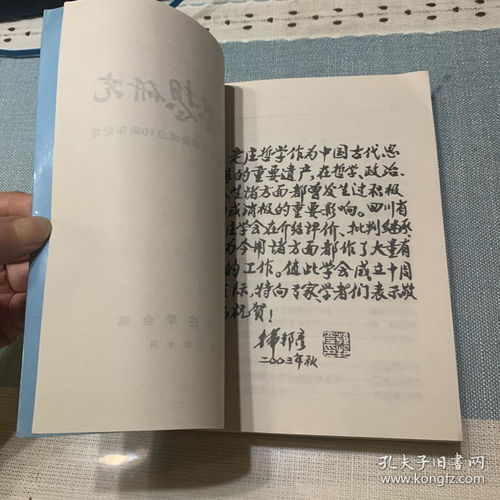 想研究
成立10周年纪念
庄学会编
年十月
老庄哲学作为中国古代思
的重要遗产,在哲学、政治、
生诸方面都曾发生过积极
或消极的重要影响。四川省
庄学会在介绍评价、批判继承、
为今用诸方面都作了大量有
的工作。值此学会成立十周
之际,特向专家学者们表示敬
与祝贺!
韩邦彦
二〇〇三年秋
孔夫子旧书网
www.kongfz.com